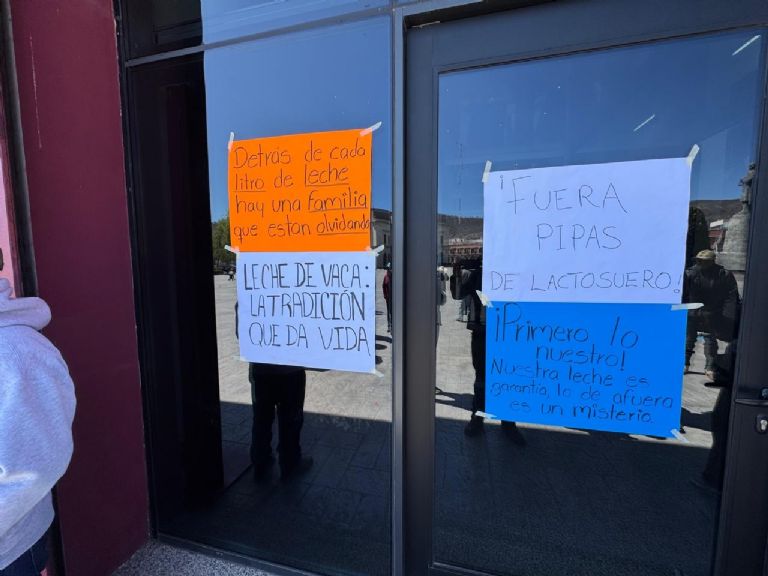 Detrás de cada
litro de leche
hay una familia
que estan olvidando
LECHE DE VACA:
LA TRADICIÓN
QUE DA VIDA
¡FUERA
PIPAS
DE LACTOSUERO!
¡Primero lo
nuestro!
Nuestra leche es
garantía, lo de afuera
es un misterio.